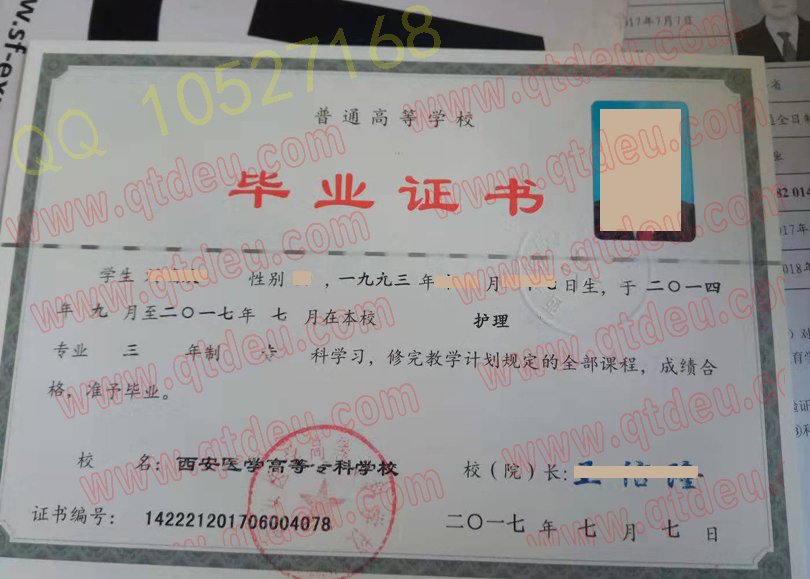 www.sf-ex
017年7月7日
QQ 10527168
www.qtdeu.com
普通高等学校
毕业证书
学生 性别 ,一九九三 年 月 日生,于 二〇一四
年 九 月至二〇一七年 七 月在本校 护理
专业 三 年制 专 科学习,修完教学计划规定的全部课程,成绩合
格,准予毕业。
校 名: 西安医学高等专科学校 校(院)长:
证书编号: 142221201706004078 二〇一七 年 七 月 七 日
省
业
82 014
017年
018年